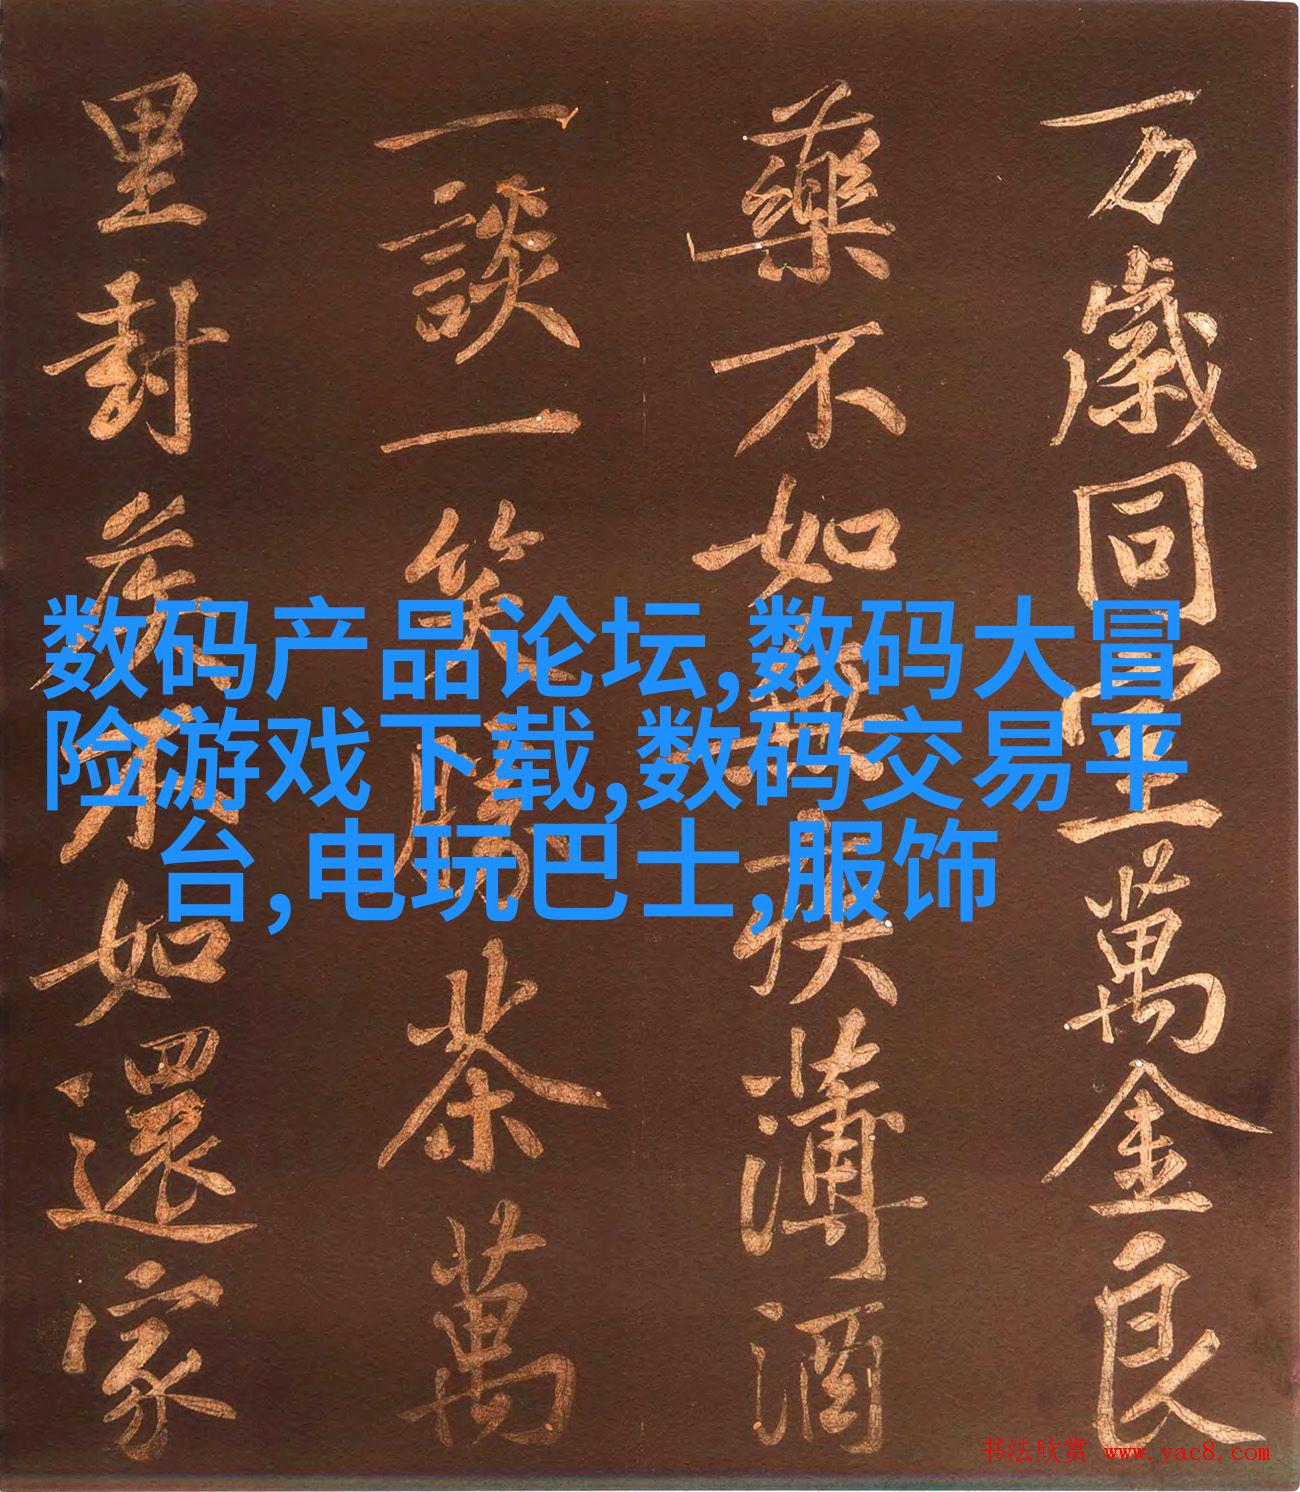 万歲同萬金良
藥不如無疾薄酒
一談一笑勝茶萬
里封矦不如還家
数码产品论坛,数码大冒
险游戏下载,数码交易平
台,电玩巴士,服饰
书法欣赏 www.yac8.com